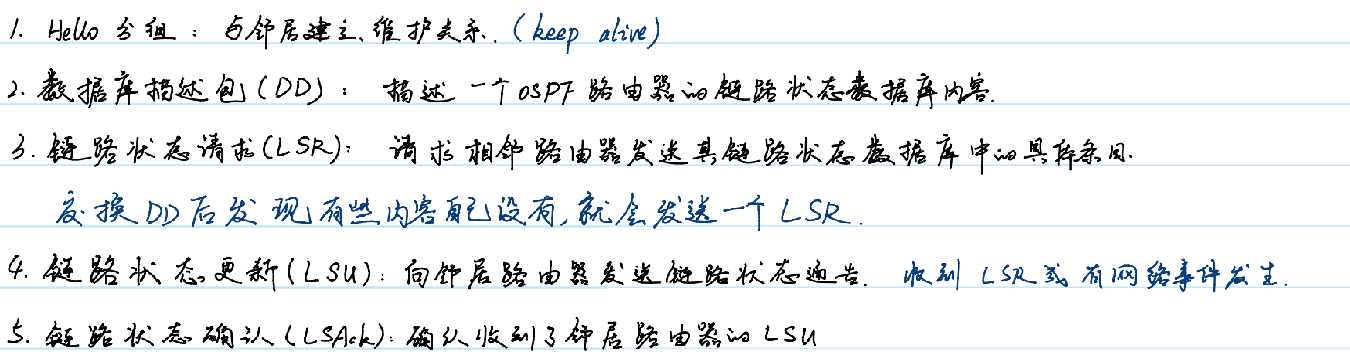 1. Hello分组：与邻居建立、维护关系.（keep alive）
2. 数据库描述包(DD)： 描述一个OSPF路由器的链路状态数据库内容.
3. 链路状态请求(LSR)： 请求相邻路由器发送其链路状态数据库中的具体条目.
交换DD后发现有些内容自己没有,就会发送一个LSR.
4. 链路状态更新(LSU)：向邻居路由器发送链路状态通告. 收到LSR或有网络事件发生.
5. 链路状态确认(LSAck)：确认收到了邻居路由器的LSU